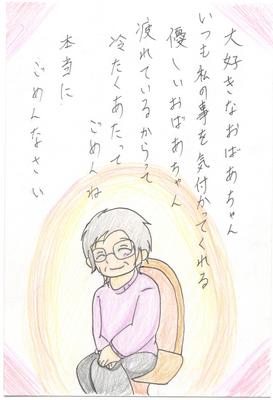 大好きなおばあちゃん
いつも私の事を気付かってくれる
優しいおばあちゃん
疲れているからって
冷たくあたって
ごめんね
本当に
ごめんなさい